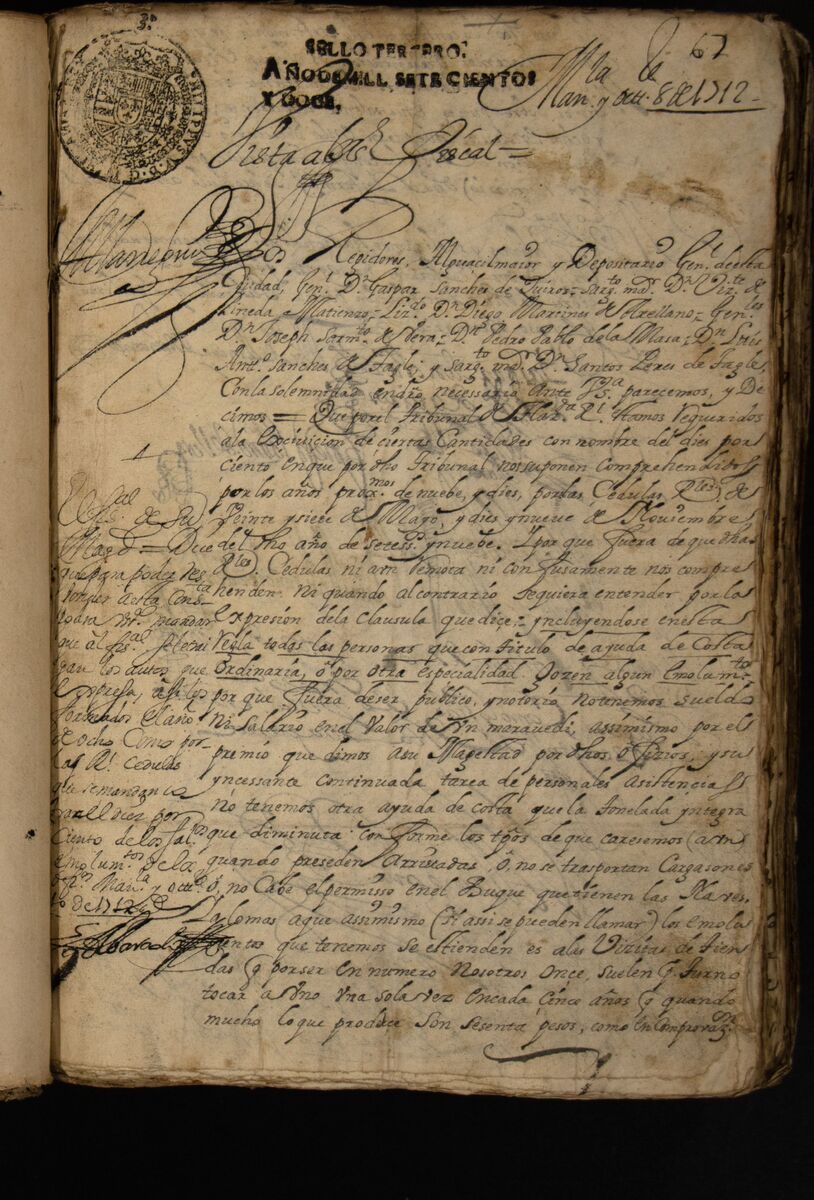 SELLO TERCERO.
AÑO DE MILL SETE CIENTOS
Y DOCE,
67
Man.ª y Octt.e 8 de 1712
Vista al Sr. Fiscal =
Regidores, Alguacil maior y Depositario Gen.l de esta
Ciudad, Gen.l Dn Gaspar Sanches de Quiros = Sarg.to mor. Dn Viz.te de
Pineda Matienzo = Liz.do Dn Diego Martines de Arellano = Gen.les
Dn Joseph Sarm.to de Vera = Dn Pedro Pablo de la Masa = Dn Luis
Antt.o Sanches de Tagle; y Sarg.to mor. Dn Santos Peres de Tagle,
Con la solemnidad en dro necessario ante V.S.ª parecemos, y De
cimos = Que por el Tribunal de Haz.da Rl. Hamos requeridos
a la Exivicion de ciertas Cantidades con nombre del dies por
ciento en que por dho Tribunal nos suponen Comprehendidos
por los años prox.mos de nuebe, y dies, por las Cedulas R.les de
Veinte y siete de Mayo, y dies y nueve de Noviembre
del dho año de setess.s y nuebe. I por que fuera de que dhas
R.les Cedulas ni aun remota ni confusamente nos compre
henden. ni quando al contrario se quiera entender por la
expresion de la Clausula que dice; yncluyendose en esta
Regla todas las personas que con titulo de ayuda de Costa
Ordinaria, o por otra especialidad Gozen algun Emolum.to
por que fuera de ser publico, y notorio no tenemos sueldo
ni Salario en el Valor de Vn maravedi, assimismo por el
premio que dimos a su Magestad por dhos oficios; y su
yncessante continuada tarea de personales asistencias
no tenemos otra ayuda de costa que la tonelada yntegra
que diminuta conforme los tpos de que caresemos (aun
quando preseden Arrivadas, o, no se trasportan Cargasones
o, no Cabe el permisso en el Buque que tienen las Naves.
Y lo mas a que assimismo (si assi se pueden llamar) los emolu
mentos que tenemos se estienden es a las Vizitas de Tien
das (q por ser en numero Nosotros Once, suelen p.r Turno
tocar a Vno Vna sola vez en cada Cinco años (y quando
mucho lo que produce son sesenta pesos, como en Comprovaz.n
El fis.al de Su
Mag.d = Dice
que para poder res
ponder a esta Cons.ta
se ha de mandar
que al fis.al se le trai
gan los autos que
Expresa, asi los
formados el año
de ocho Como por
las Rl. Cedulas
que se mandan co
brar el diez por
Ciento de los Sal.os
emolum.tos de los
of.os Man.la y octt.e
10 de 1712